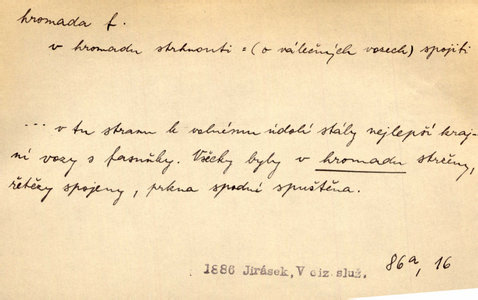 hromada f.
v hromadu strhnouti = (o válečných vozech) spojiti
... v tu stranu k volnému údolí stály nejlepší kraj-
ní vozy s fasuňky. Všecky byly v hromadu strženy,
řetězy spojeny, prkna spodní spuštěna.
1886 Jirásek, V ciz. služ. 86a, 16